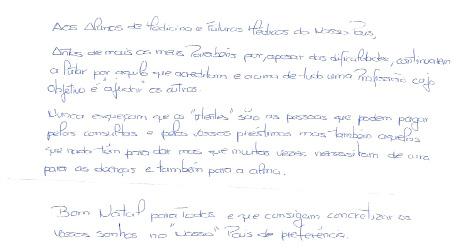 Aos Alunos de Medicina e Futuros Médicos do Nosso País,
Antes de mais os meus Parabéns por, apesar das dificuldades, continuarem
a lutar por aquilo que acreditam e acima de tudo uma Profissão cujo
objetivo é "ajudar" os outros.
Nunca esqueçam que os "clientes" são as pessoas que podem pagar
pelas consultas e pelos vossos préstimos mas também aqueles
que nada têm para dar mas que muitas vezes necessitam de cura
para as doenças e também para a alma.
Bom Natal para todos e que consigam concretizar os
vossos sonhos no "Nosso" País de preferência.